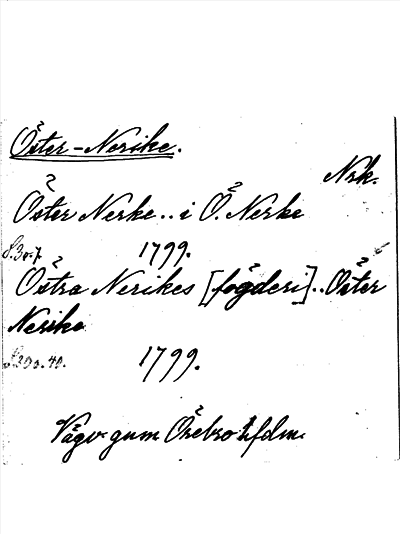 Öster-Nerike.
Nrk.
Öster Nerke.. i Ö. Nerke
1799.
Östra Nerikes [fögderi].. Öster
Nerike
1799.
Vägv. gnm Örebro